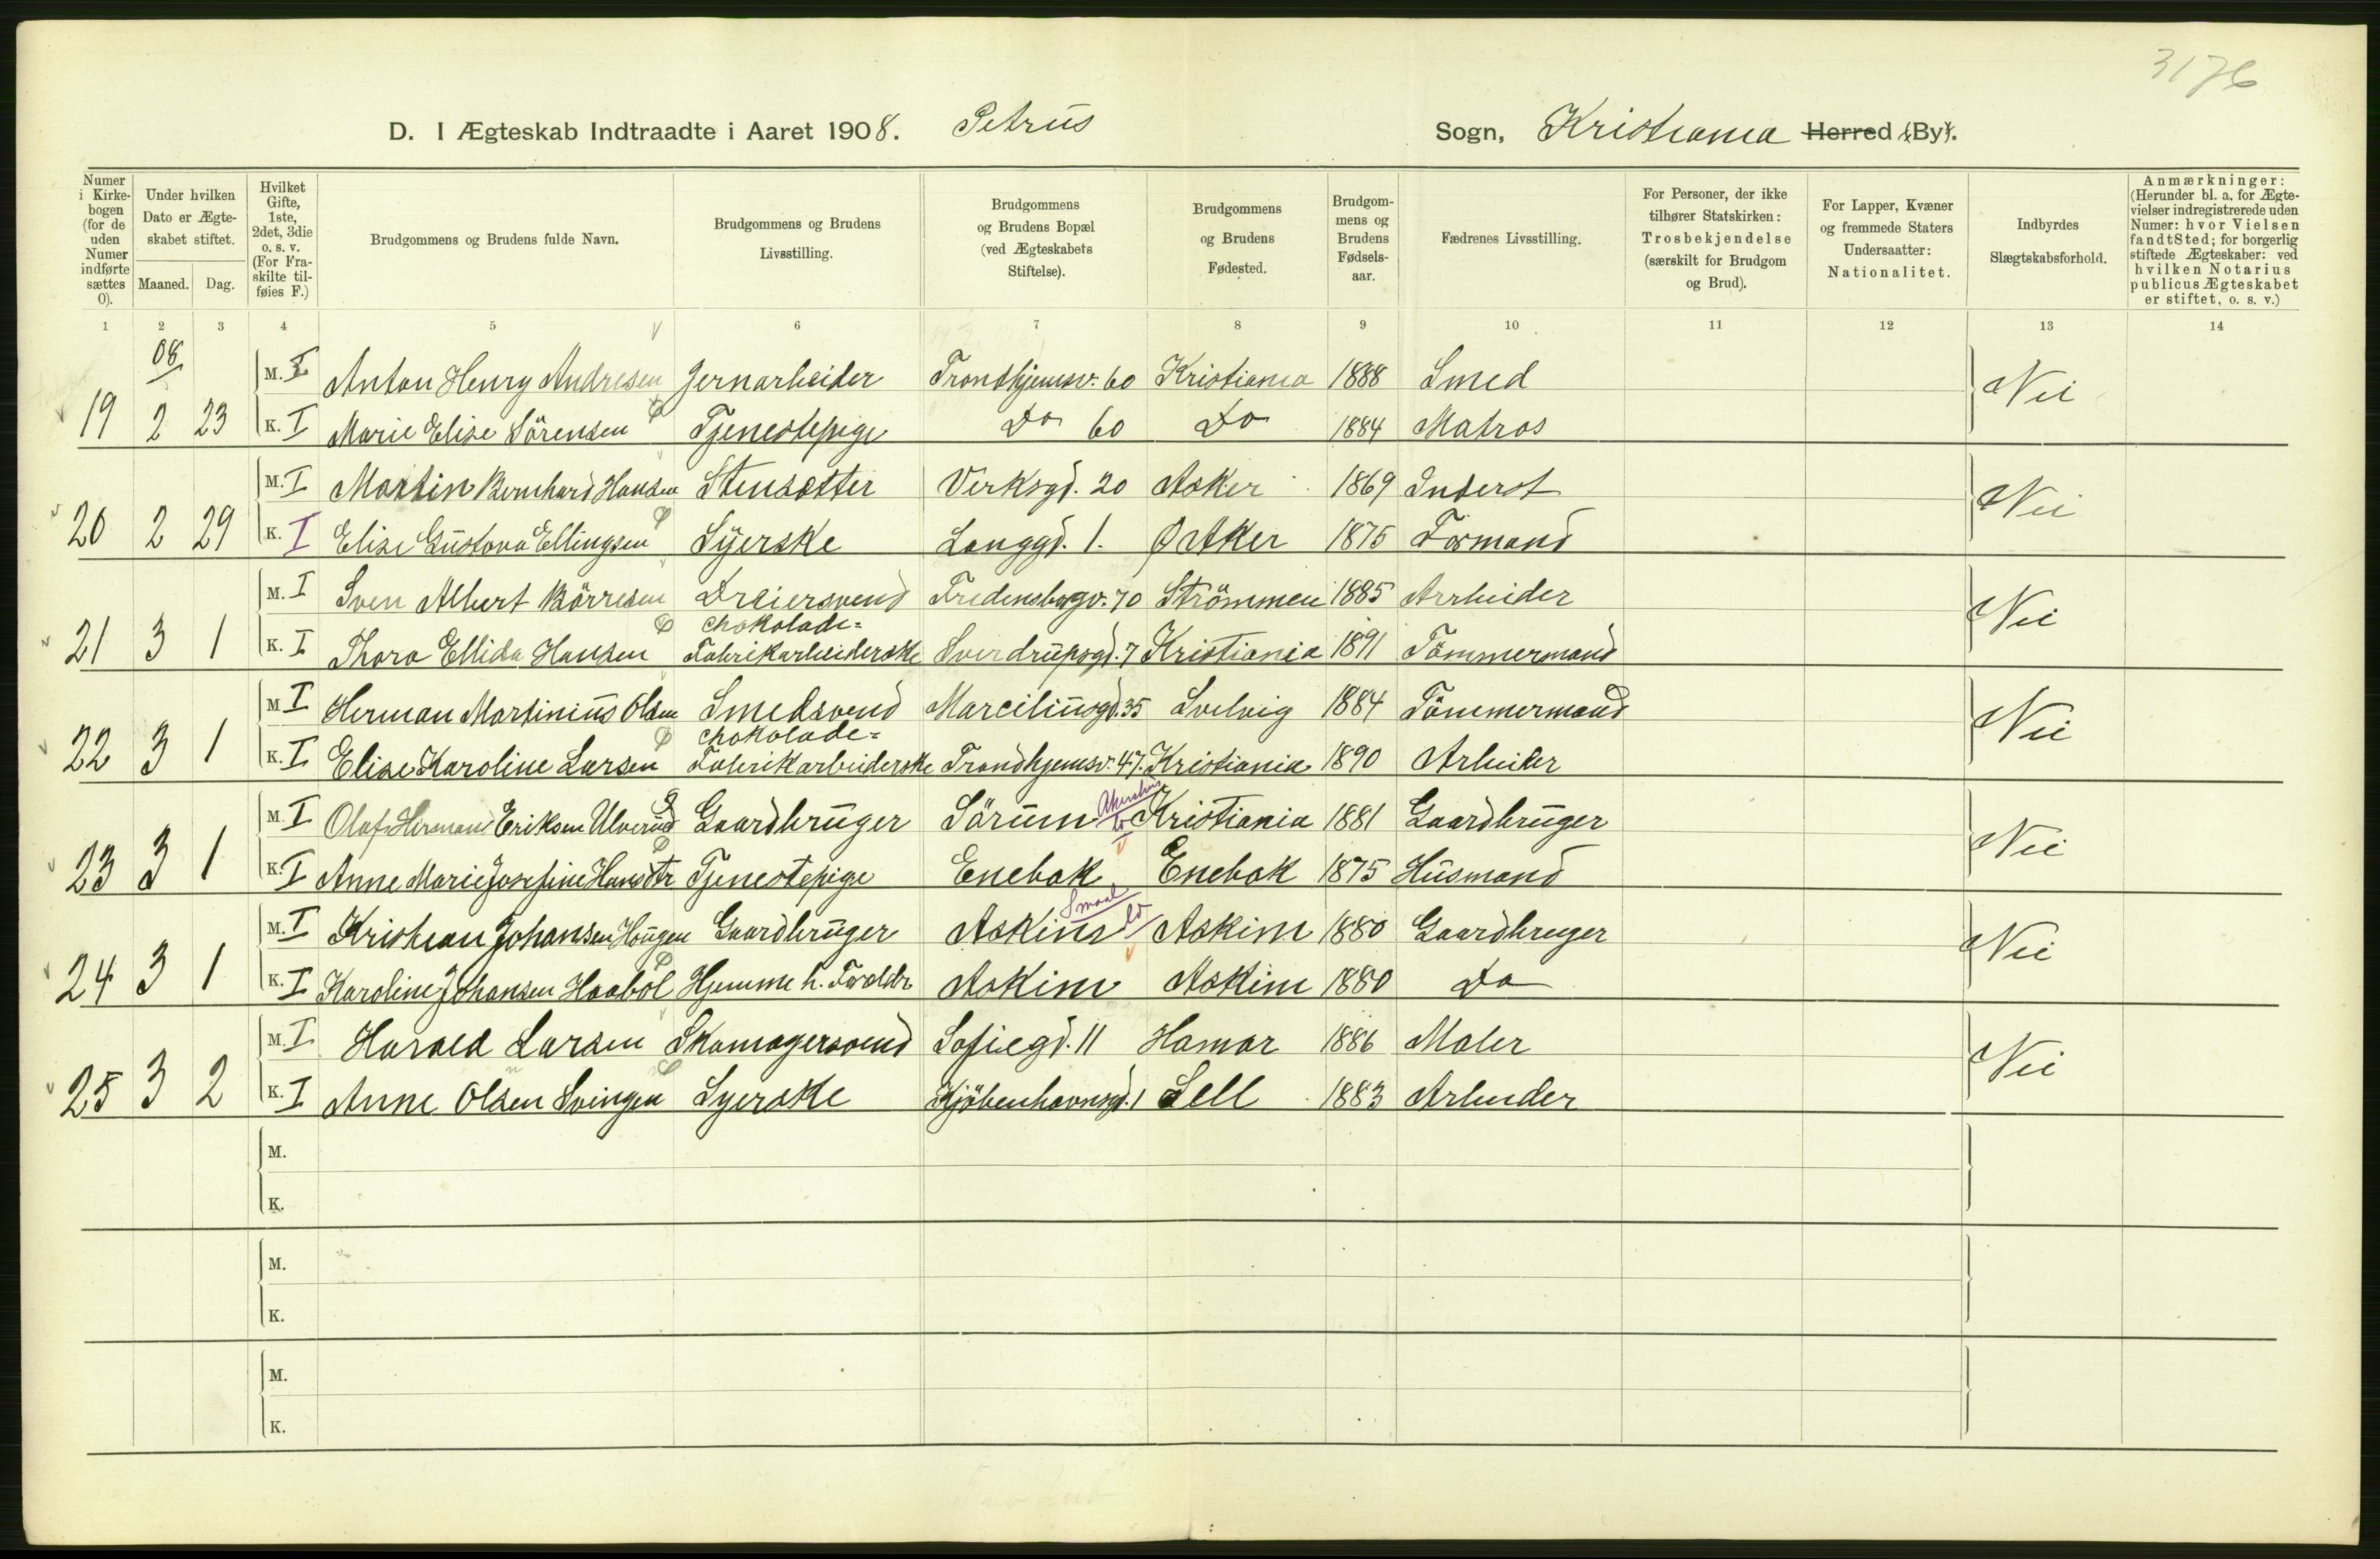 3176
D. I Ægteskab Indtraadte i Aaret 1908. Petrus Sogn, Kristiania Herred (By).
Numer i Kirkebogen (for de uden Numer indførte sættes 0). | Under hvilken Dato er Ægteskabet stiftet. Maaned. Dag. | Hvilket Gifte, 1ste, 2det, 3die o. s. v. (For Fraskilte tilføies F.) | Brudgommens og Brudens fulde Navn. | Brudgommens og Brudens Livsstilling. | Brudgommens og Brudens Bopæl (ved Ægteskabets Stiftelse). | Brudgommens og Brudens Fødested. | Brudgommens og Brudens Fødselsaar. | Fædrenes Livsstilling. | For Personer, der ikke tilhører Statskirken: Trosbekjendelse (særskilt for Brudgom og Brud). | For Lapper, Kvæner og fremmede Staters Undersaatter: Nationalitet. | Indbyrdes Slægtskabsforhold. | Anmærkninger: (Herunder bl. a. for Ægtevielser indregistrerede uden Numer: hvor Vielsen fandt Sted; for borgerlig stiftede Ægteskaber: ved hvilken Notarius publicus Ægteskabet er stiftet, o. s. v.)
1 2 3 4 5 6 7 8 9 10 11 12 13 14
08
M. I Anton Henry Andresen Jernarbeider Trondhjemsv. 60 Kristiania 1888 Smed Nei
19 2 23 K. I Marie Elise Sörensen Tjenestepige Do 60 Do 1884 Matros
M. I Martin Bernhard Hansen Stensætter Verksgd. 20 Asker 1869 Inderst Nei
20 2 29 K. I Elise Gustava Ellingsen Syerske Langgd. 1. Ø Aker 1875 Formand
M. I Sven Albert Börresen Dreiersvend Fredensborgv. 70 Strömmen 1885 Arbeider Nei
chokolade=
21 3 1 K. I Thora Ellida Hansen Fabrikarbeiderske Sverdrupsgd. 7 Kristiania 1891 Tömmermand
M. I Herman Martinius Olsen Smedsvend Marceliusgd. 35 Svelvig 1884 Tömmermand Nei
chokolade=
22 3 1 K. I Elise Karoline Larsen Fabrikarbeiderske Trondhjemsv. 47. Kristiania 1890 Arbeider
M. I Olaf Herman Eriksen Ulverud Gaardbruger Sörum Akershus Kristiania 1881 Gaardbruger Nei
23 3 1 K. I Anne Marie Josefine Hansdtr Tjenestepige Enebak Enebak 1875 Husmand
M. I Kristian Johansen Haugen Gaardbruger Askim Smaal Askim 1880 Gaardbruger Nei
24 3 1 K. I Karoline Johansen Haaböl Hjemme h. Forældr Askim Askim 1880 Do
M. I Harald Larsen Skomagersvend Sofiegd. 11 Hamar 1886 Maler Nei
25 3 2 K. I Anne Olsen Svingen Syerske Kjöbenhavnsgd. 1 Sell 1883 Arbeider
M.
K.
M.
K.
M.
K.